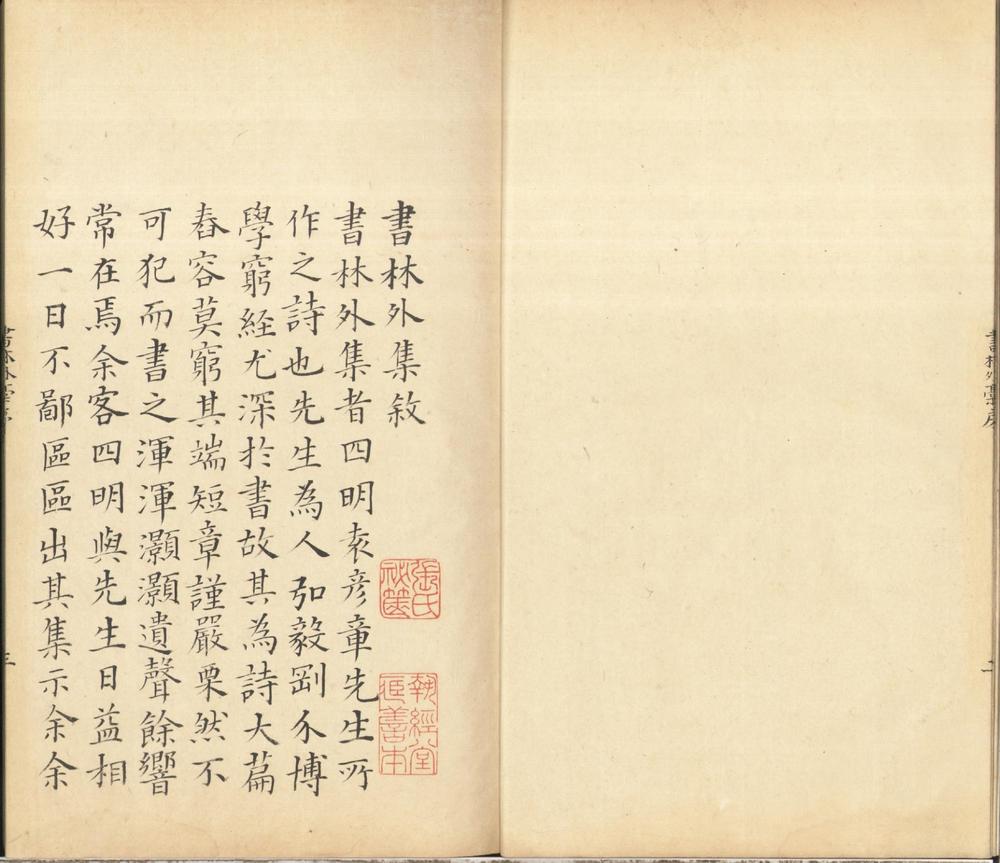 書林外集敘
書林外集者四明袁彦章先生所
作之詩也先生為人弘毅剛介博
學窮經尤深於書故其為詩大篇
舂容莫窮其端短章謹嚴栗然不
可犯而書之渾渾灝灝遺聲餘響
常在焉余客四明與先生日益相
好一日不鄙區區出其集示余余